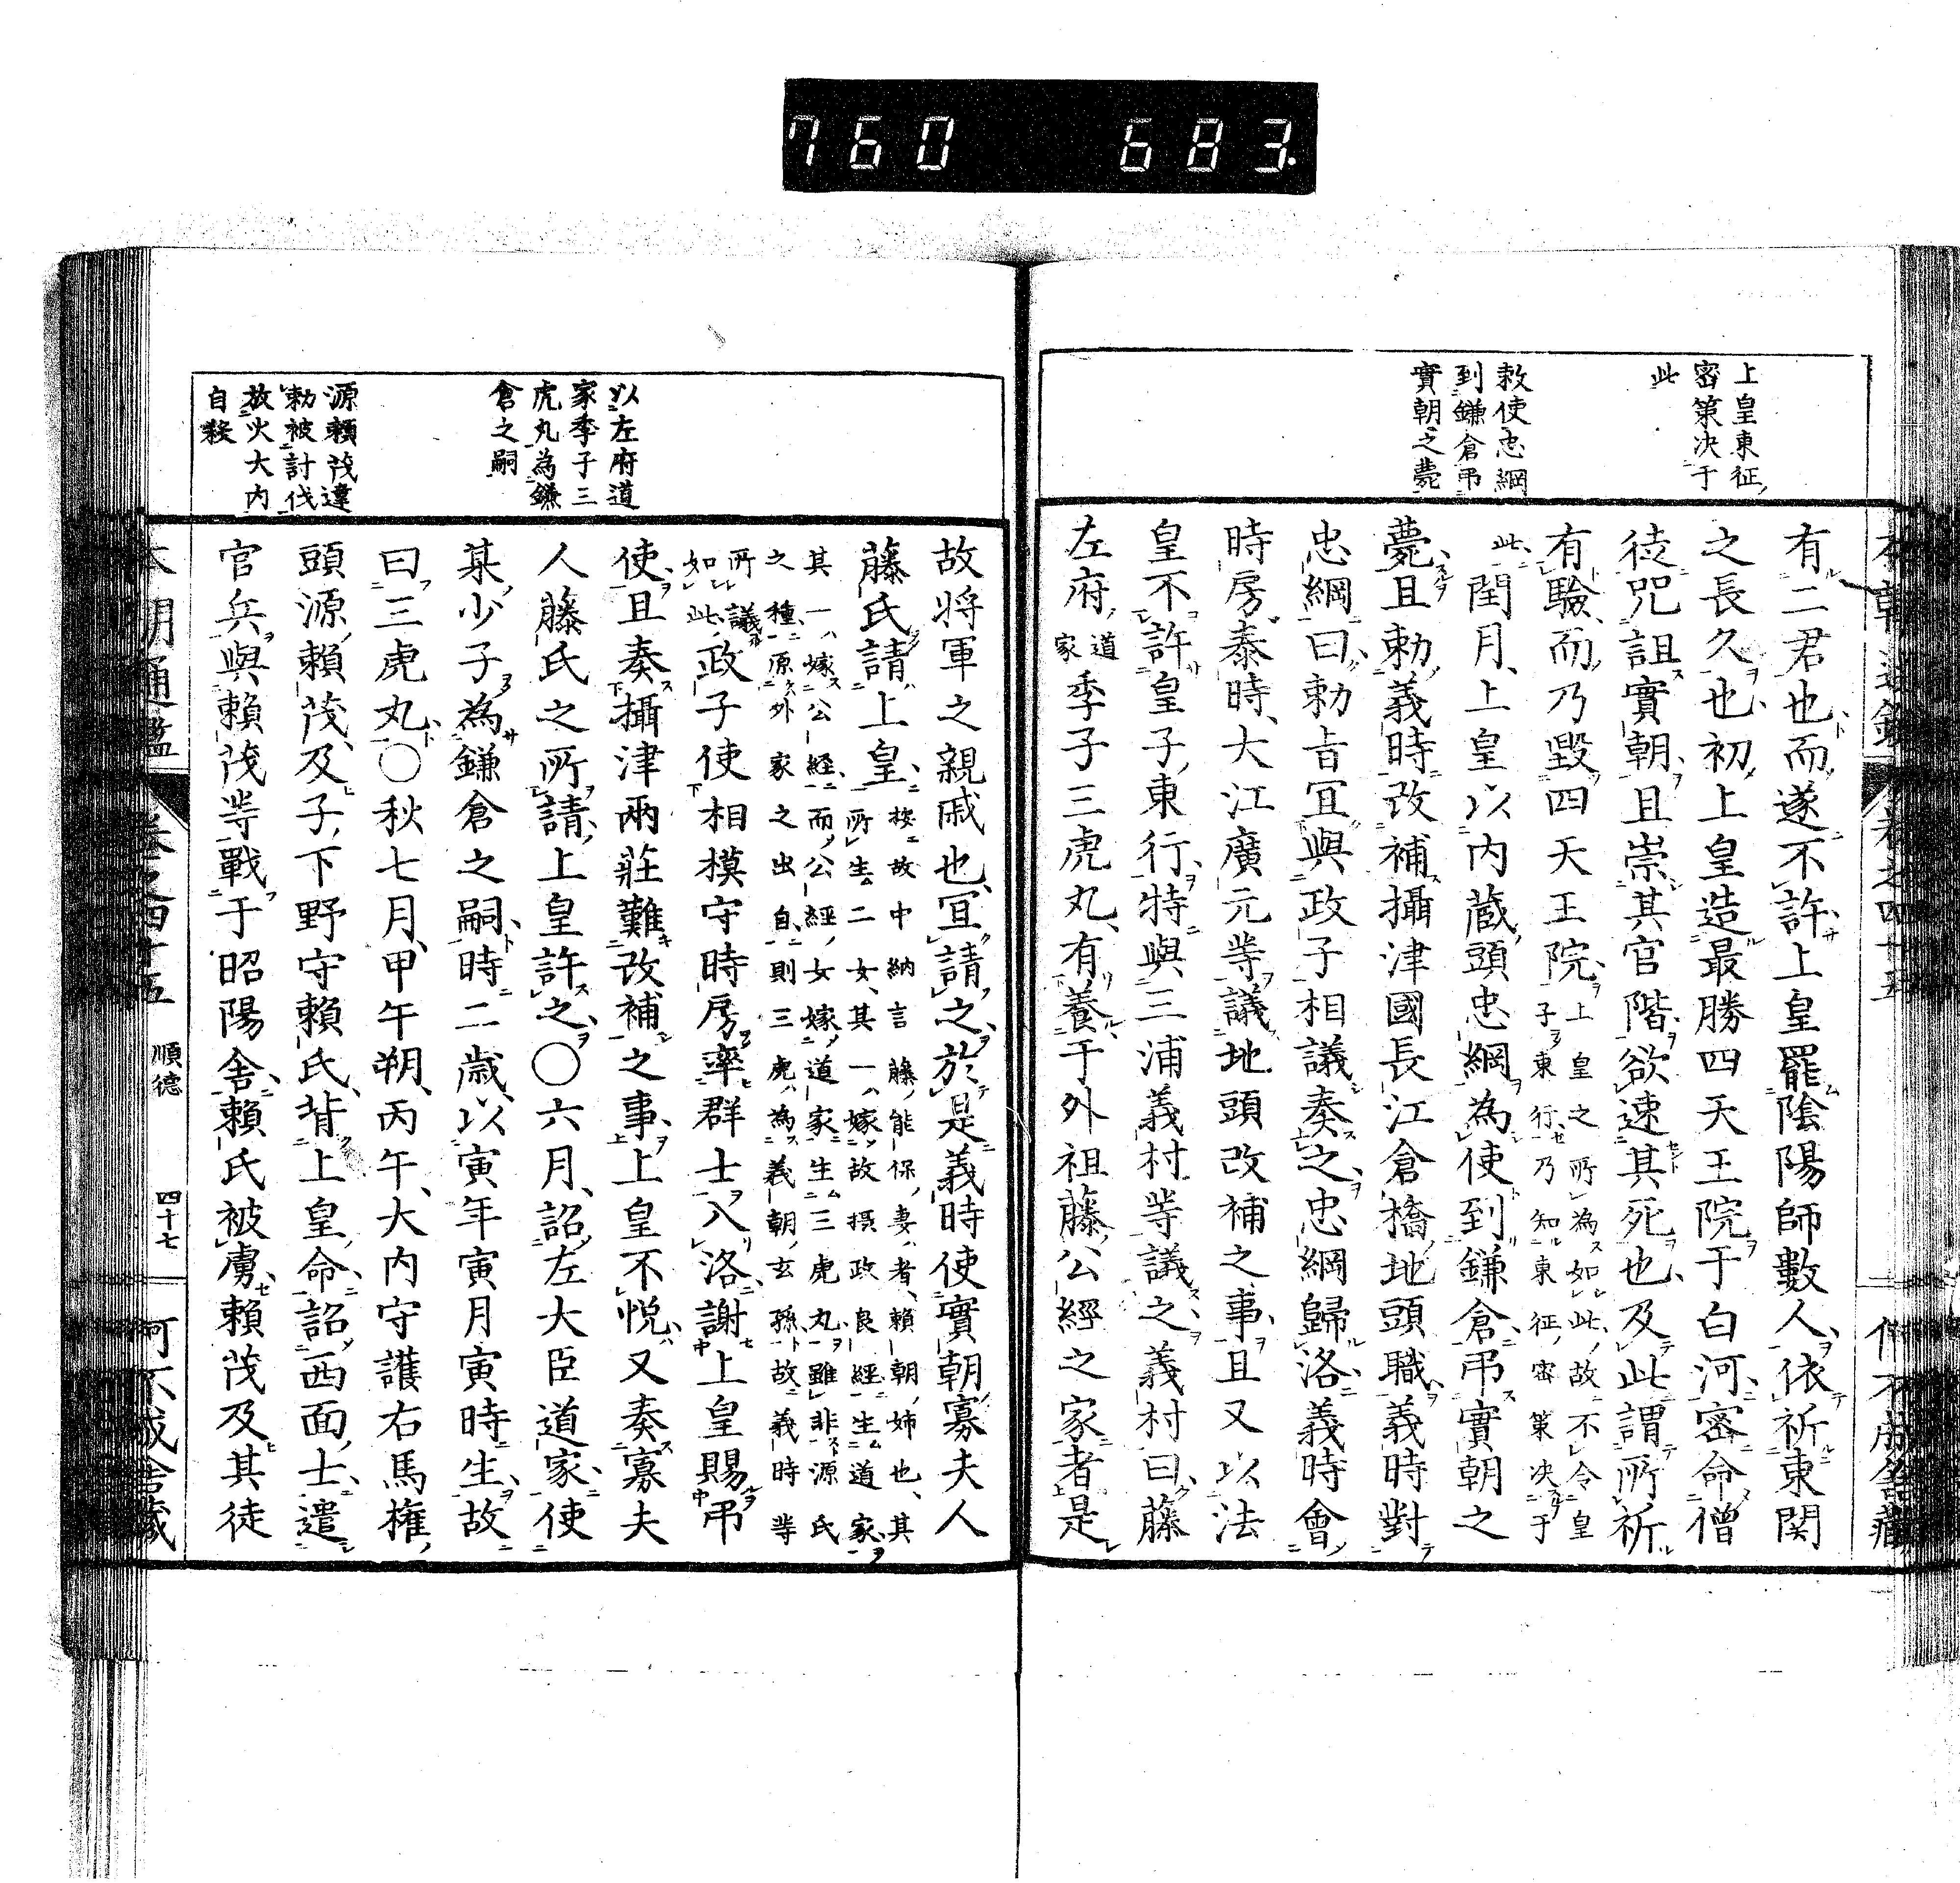 760 683.
上皇東征
密策决于
此
敕使忠綱
到鎌倉弔
實朝之薨
有二君也而遂不許上皇罷陰陽師數人依祈東関
之長久也初上皇造最勝四天王院于白河密命僧
徒咒詛實朝且崇其官階欲速其死也及此謂所祈
有驗而乃毀四天王院上皇之所為如此故不令皇
子東行乃知東征密策决于
此閏月上皇以内蔵頭忠綱為使到鎌倉弔實朝之
薨且勅義時改補攝津國長江倉橋地頭職義時對
忠綱曰勅旨冝與政子相議奏之忠綱歸洛義時會
時房泰時大江廣元等議地頭改補之事且又以法
皇不許皇子東行特與三浦義村等議之義村曰藤
左府道
家季子三虎丸有養于外祖藤公經之家者是
以左府道
家季子三
虎丸為鎌
倉之嗣
源頼茂違
勅被討伐
放火大内
自殺
故將軍之親戚也冝請之於是義時使實朝寡夫人
藤氏請上皇按故中納言藤能保妻者頼朝姉也其
所生二女其一嫁故摂政良經生道家
其一嫁公經而公經女嫁道家生三虎丸雖非源氏
之種原外家之出自則三虎為義朝玄孫故義時等
所議
如此政子使相模守時房率群士入洛謝上皇賜弔
使且奏攝津兩莊難改補之事上皇不悦又奏寡夫
人藤氏之所請上皇許之〇六月詔左大臣道家使
某少子為鎌倉之嗣時二歳以寅年寅月寅時生故
曰三虎丸〇秋七月甲午朔丙午大内守護右馬權
頭源頼茂及子下野守頼氏背上皇命詔西面士遣
官兵與頼茂等戰于昭陽舎頼氏被虜頼茂及其徒
本朝通鑑 卷之四十五 順德 四十七